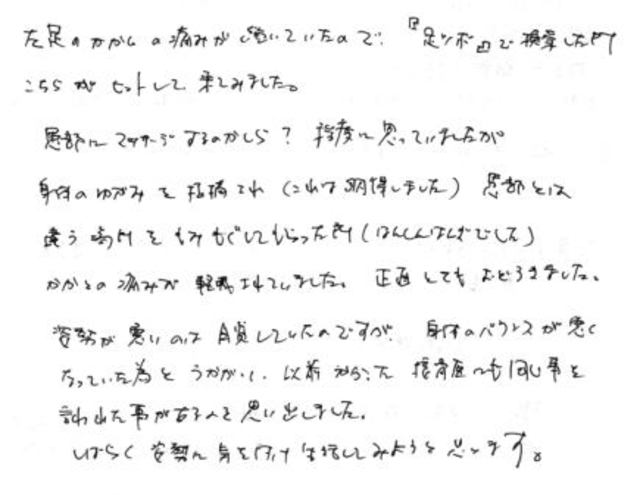 左足のかかとの痛みが続いていたので、『足ツボ』で検索した所
こちらがヒットして来てみました。
患部にマッサージするのかしら？程度に思っていましたが
身体のゆがみを指摘され（これは納得しました）患部とは
違う場所をもみもぐしてもらった所（はんしんはんぎでした）
かかとの痛みが軽減されていました。正直とてもおどろきました。
姿勢が悪いのは自覚していたのですが、身体のバランスが悪く
なっていた為とうかがい、以前かかった接骨医にも同じ事を
言われた事がある事を思い出しました。
しばらく姿勢に気を付け生活してみようと思います。